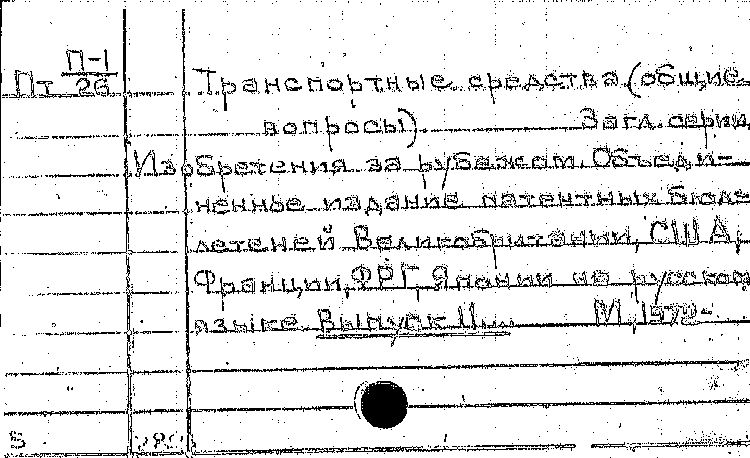 Пт П-1/26 Транспортные средства (общие
вопросы). Загл. серии,
Изобретения за рубежом. Объеди-
ненное издание патентных бюл-
летеней Великобритании, США,
Франции, ФРГ, Японии на русском
языке. Выпуск 11... М., 1972-